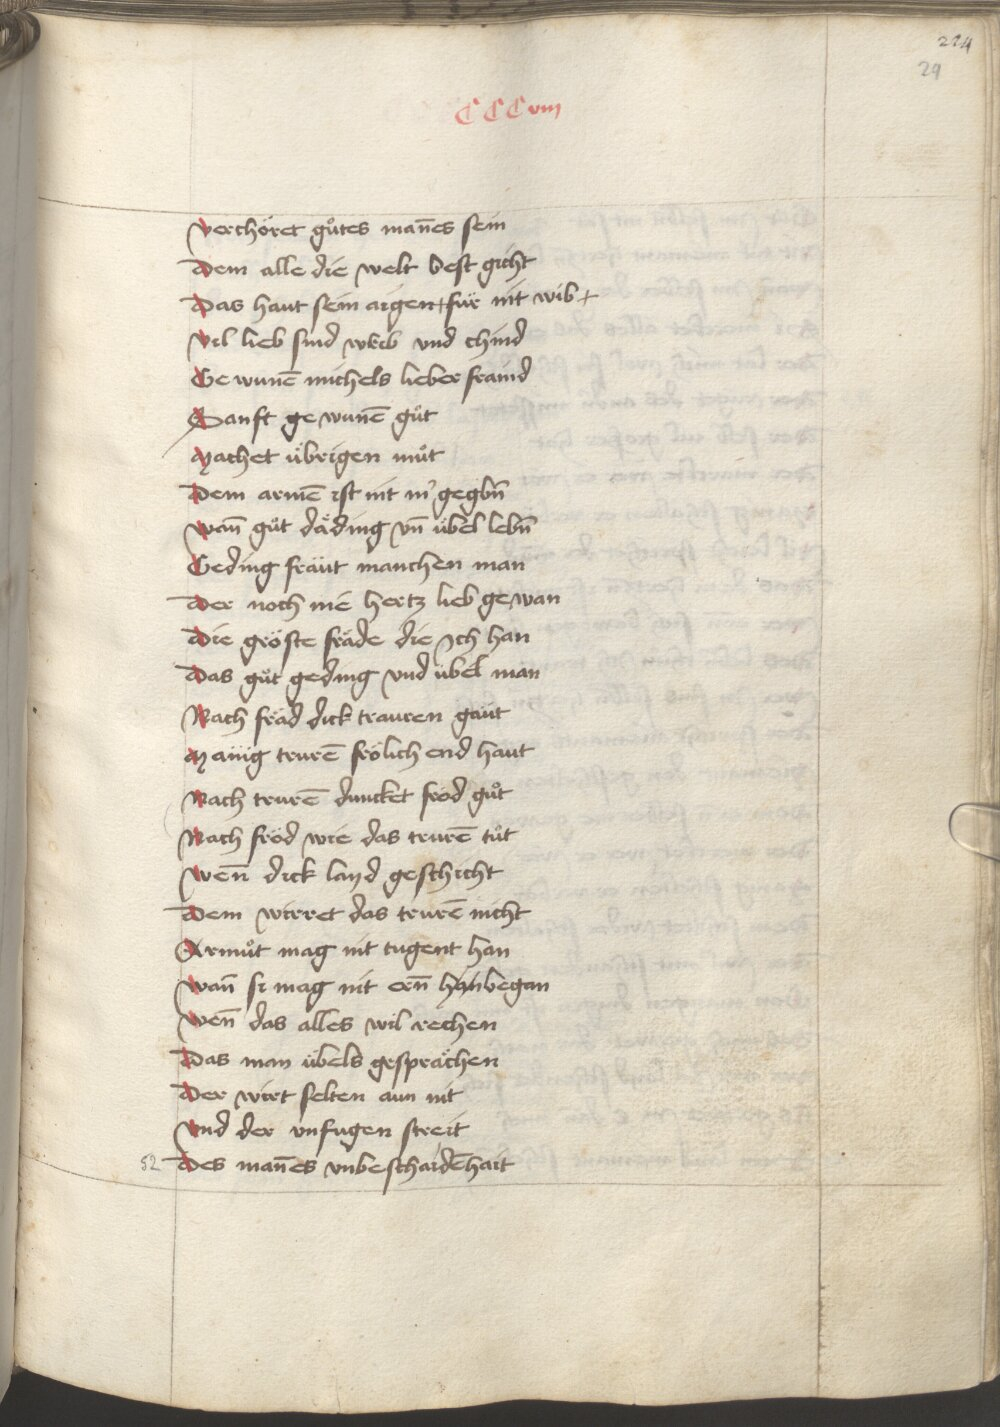 224
29
CCCviii
Verchöret gůtes man̄es sein
Dem alle die welt best gicht
Das haut sein aigen + für nit wib +
Vil lieb sind weib vnd chind
Gewunē michels lieber fraind
Sanft gewunē gůt
Machet übrigen můt
Dem armē ist nit mʼ gegbn̄
Wan̄ gůt däding vn̄ übel lebn̄
Geding fräut manchen man
Der noch nie hertz lieb gewan
Die gröste fräde die Ich han
Das gůt geding vnd übel man
Nach fräd dick trauren gaut
Mänig trurē frölich end haut
Nach trurē duncket fröd gůt
Nach fröd wie das trurē tůt
Wen̄ dick layd geschicht
Dem wirret das trurē nicht
Armůt mag nit tugent han
Wan̄ si mag nit ern̄ began
Wen̄ das alles wil rechen
Das man übels gesprächen
Der wirt selten aun nit
Vnd der vnfugen streit
52 Des man̄es vnbeschaidēhait